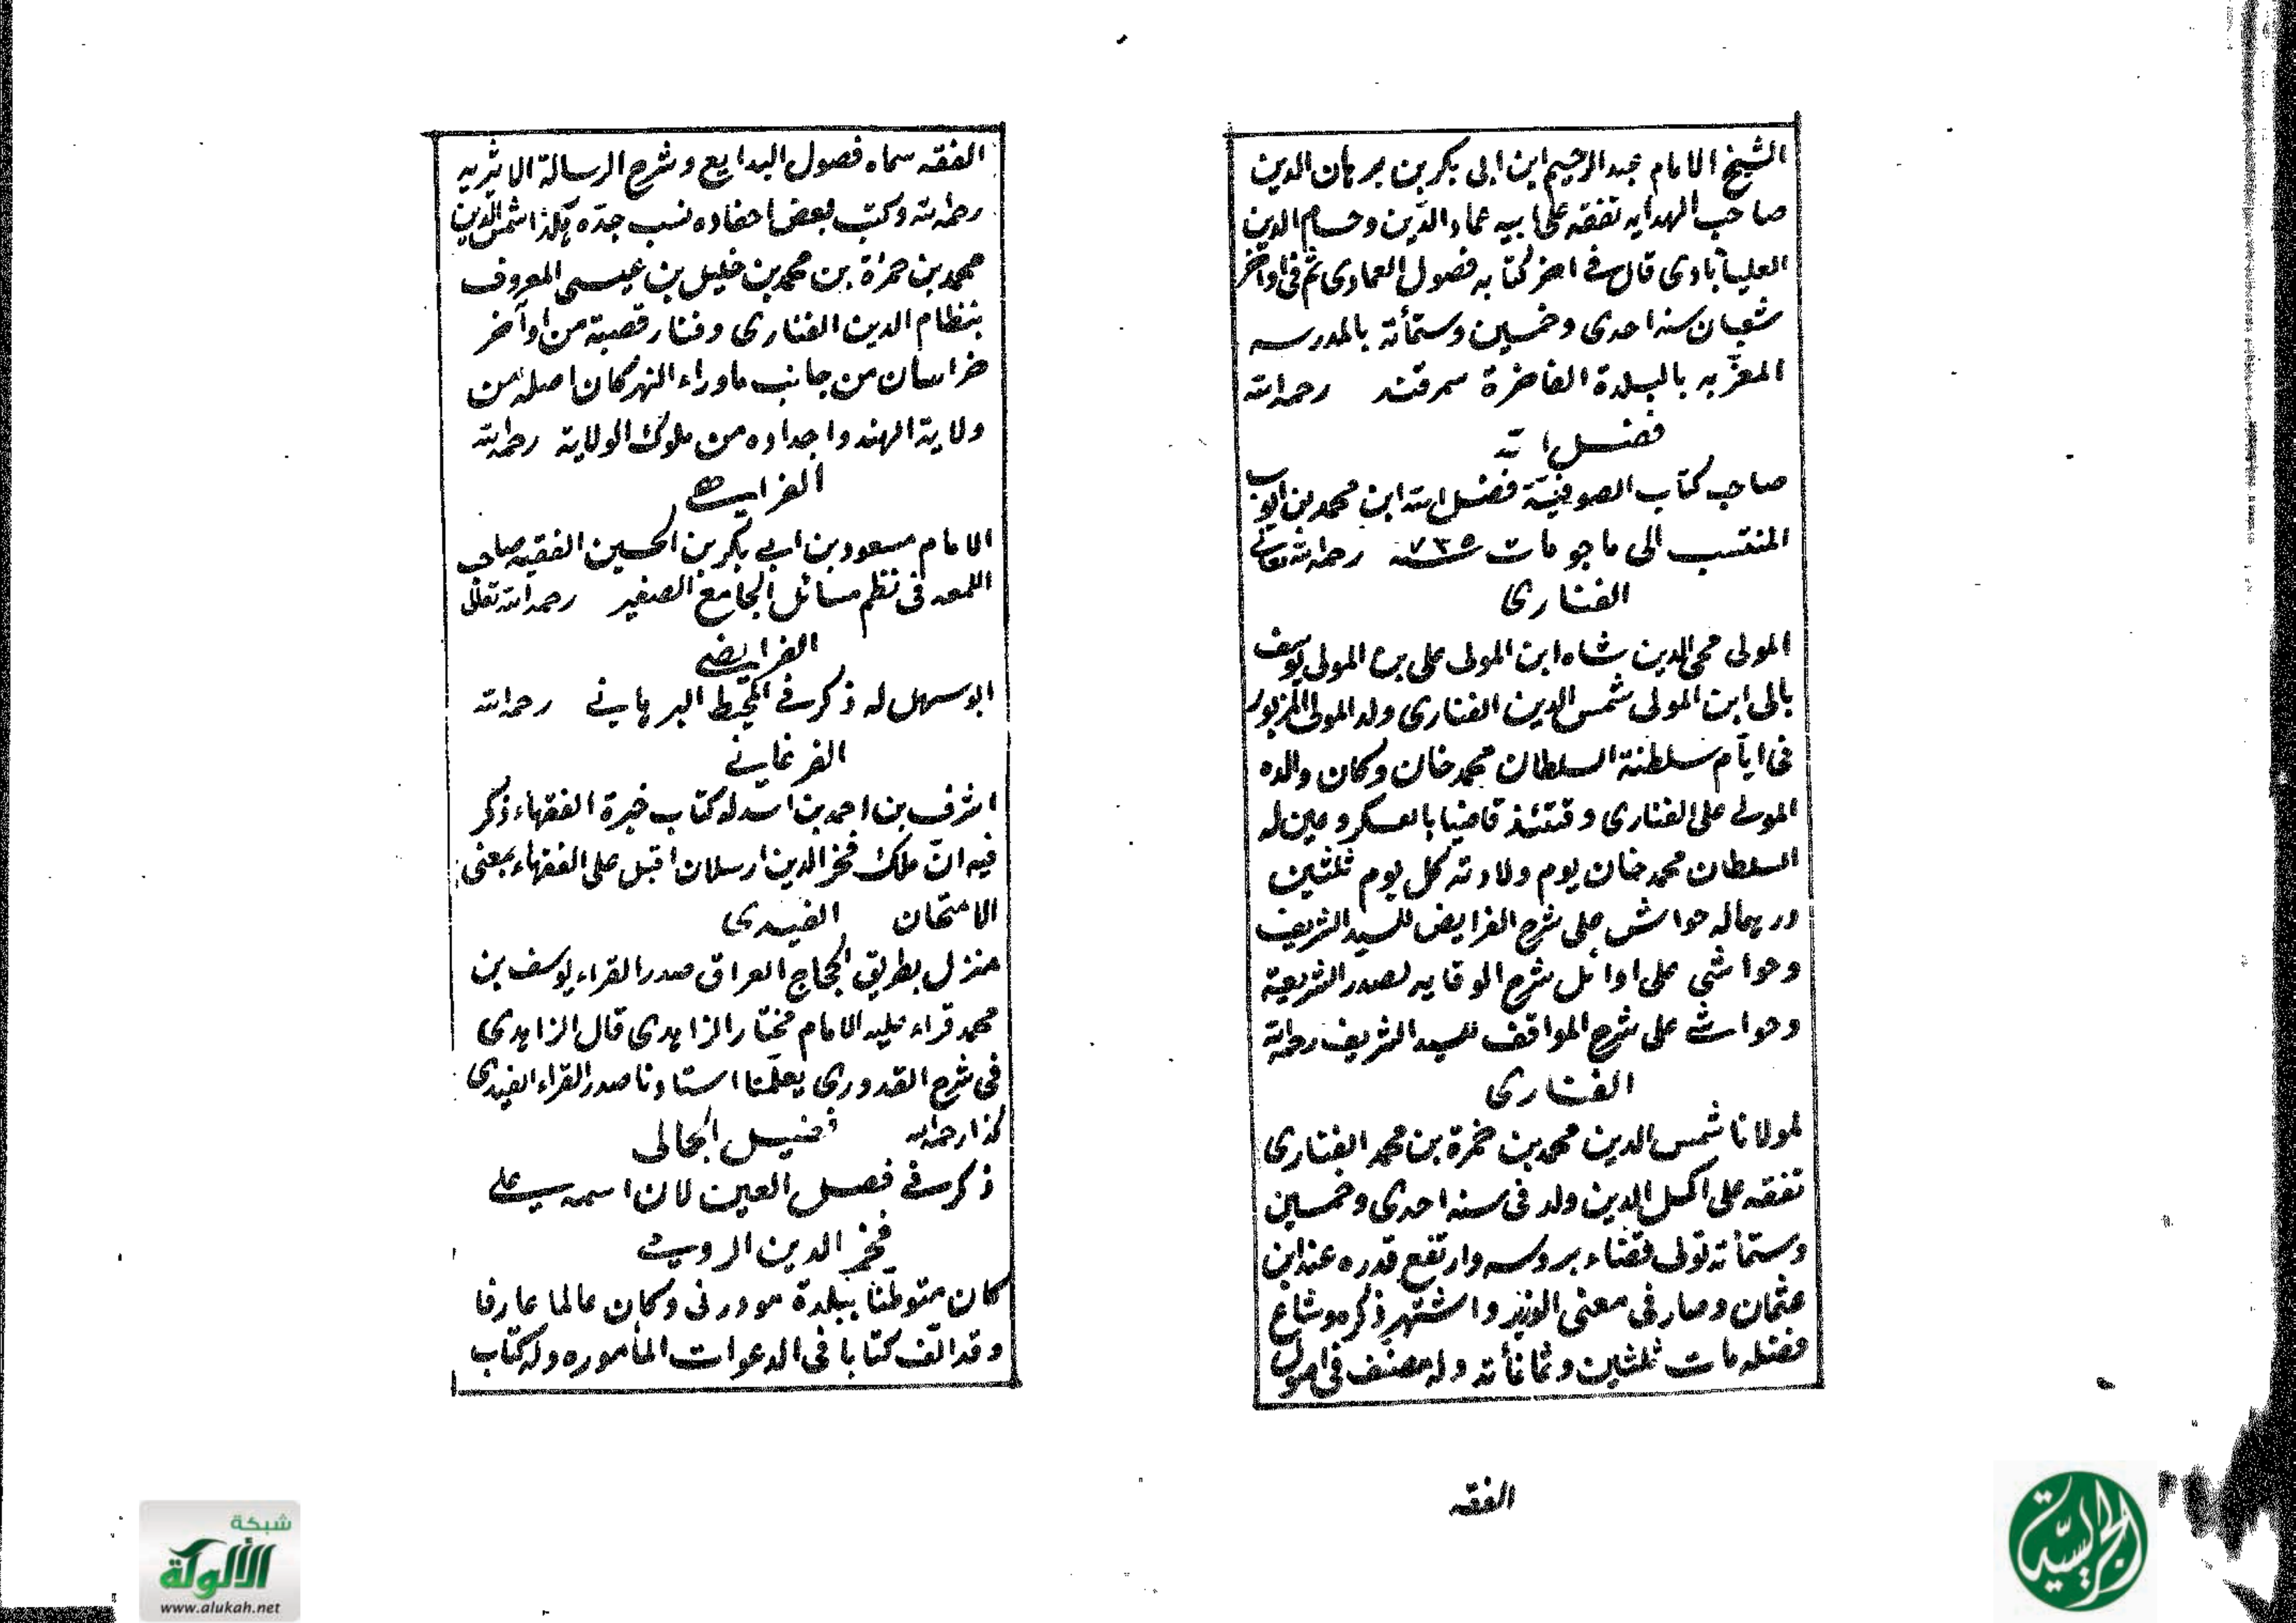 الشيخ الامام عبد الرحيم ابن ابى بكر بن برهان الدين
صاحب الهدايه تفقه على ابيه عماد الدين وحسام الدين
العليابادى قال فى اخر كتابه فصول العمادى تم فى اواخر
شعبان سنه احدى وخمسين وستمأئة بالمدرسه
المعزيه بالبلدة الفاخرة سمرقند رحمه الله
فضل الله
صاحب كتاب الصوفية فضل الله ابن محمد بن ايوب
المنتسب الى ماجو مات سنه رحمه الله تعالى
الفنارى
المولى محى الدين شاه ابن المولى على بن المولى يوسف
بالى ابن المولى شمس الدين الفنارى ولد المولى المزبور
فى ايّام سلطنة السلطان محمد خان وكان والده
المولى على الفنارى وقتئذ قاضيا بالعسكر وعين له
السلطان محمد خان يوم ولادته كل يوم ثلثين
درهما له حواش على شرح الفرايض للسيد الشريف
وحواشى على اوائل شرح الوقايه لصدر الشريعة
وحواشى على شرح المواقف للسيد الشريف رحمه الله
الفنارى
لمولانا شمس الدين محمد بن حمزة بن محمد الفنارى
تفقه على اكمل الدين ولد فى سنه احدى وخمسين
وستمأته تولى قضاء بروسه وارتفع قدره عند ابن
عثمان وصار فى معنى الوزير واشتهر ذكره وشاع
فضله مات ثلثين وثمانمأته وله مصنف فى اصول
الفقه
الفقه سماه فصول البدايع وشرح الرسالة الاثريه
رحمه الله وكتب بعض احفاده نسب جدّه هكذا شمس الدين
محمد بن حمزة بن محمد بن خليل بن عيسى المعروف
بنظام الدين الفنارى وفنار قصبة من اوآخر
خراسان من جانب ماوراء النهر كان اصله من
ولاية الهند واجداده من ملوك الولاية رحمه الله
الامام مسعود بن ابى بكر بن الحسين الفقيه صاحب
اللمعه فى نظم مسائل الجامع الصغير رحمه الله تعالى
الفرايضى
ابو سهل له ذكر فى المحيط البرهانى رحمه الله
الفرغانى
اشرف بن احمد بن اسد له كتاب خبرة الفقهاء ذكر
فيه انّ ملك فخر الدين ارسلان اقبل على الفقهاء بمعنى
الامتحان الفيدى
منزل بطريق الحجاج العراق صدر القراء يوسف بن
محمد قراء عليه الامام مختار الزاهدى قال الزاهدى
فى شرح القدورى يعلّمنا استادنا صدر القراء الفيدى
كذا رحمه الله فضيل الجمالى
ذكر فى فصل العين لان اسمه على
فخر الدين الرومى
كان متوطنا ببلدة مودرنى وكان عالما عارفا
وقد الّف كتابا فى الدعوات المأموره وله كتاب
شبكة
الألوكة
www.alukah.net